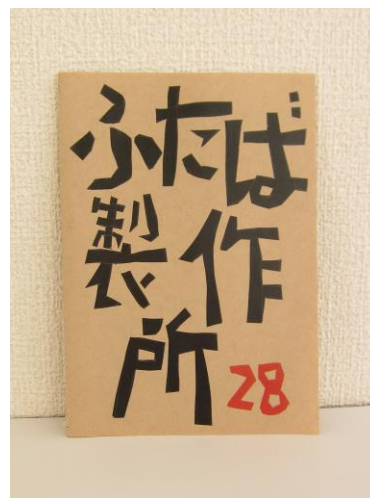 ふたば
製作
所 28